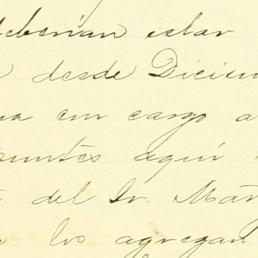 deberían estar
desde Diciem
en cargo a
puntes aquí
del Sr. Mar
los agregan